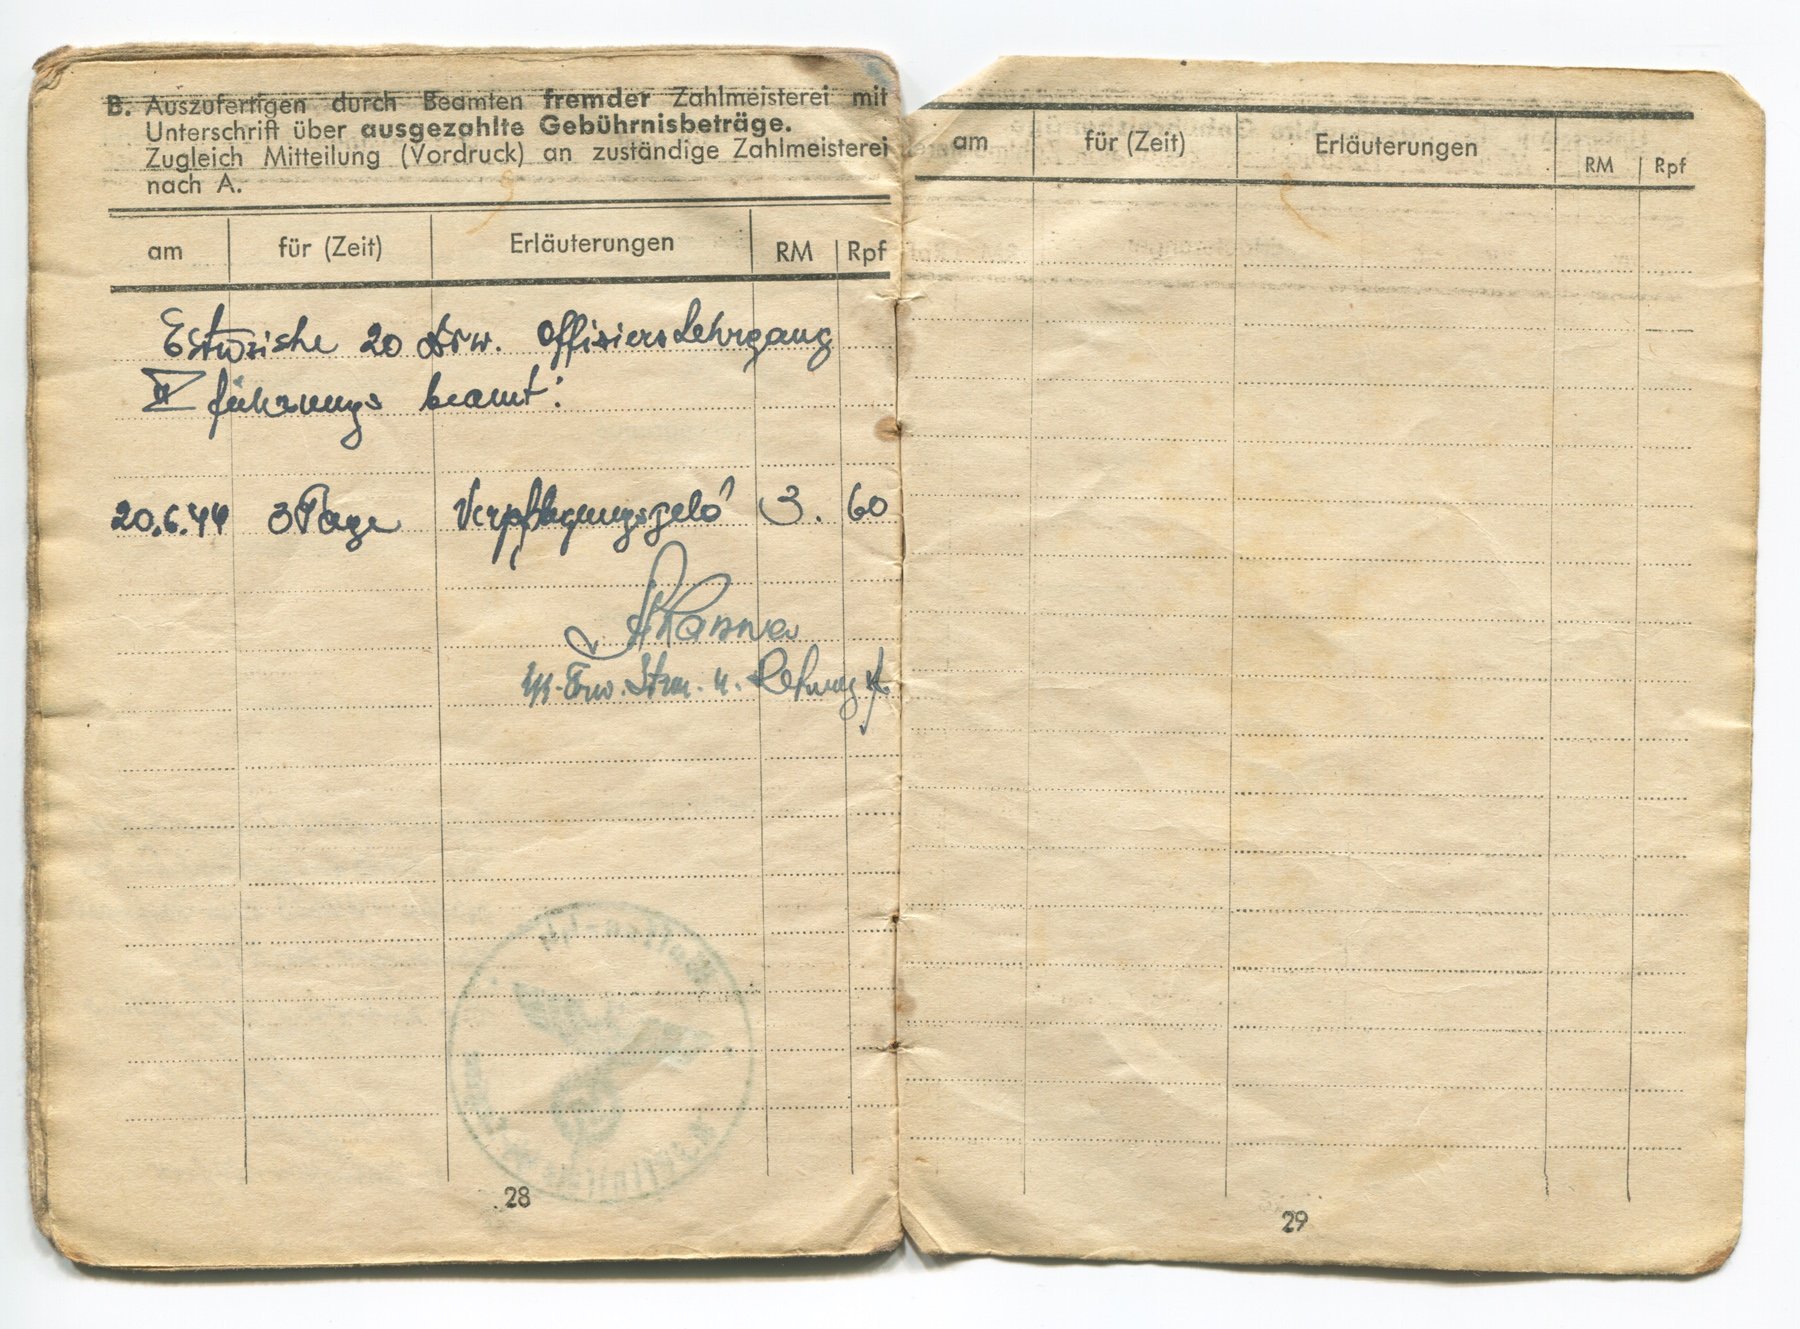 B. Auszufertigen durch Beamten fremder Zahlmeisterei mit
Unterschrift über ausgezahlte Gebührnisbeträge.
Zugleich Mitteilung (Vordruck) an zuständige Zahlmeisterei
nach A.
am für (Zeit) Erläuterungen RM Rpf
20 Offiziers Lehrgang
führungs beamt:
20.6.44 3 Tage Verpflegungsgeld 3. 60
28
am für (Zeit) Erläuterungen RM Rpf
29